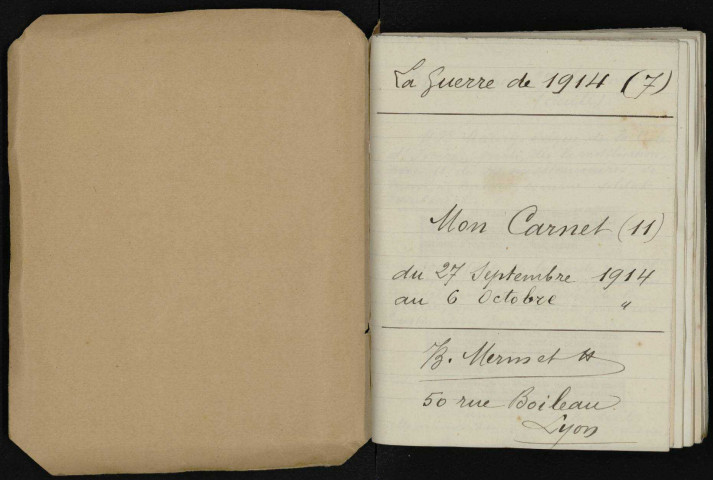 La Guerre de 1914 (7)
Mon Carnet (11)
du 27 Septembre 1914
au 6 Octobre "
B. Mermet
50 rue Boileau
Lyon